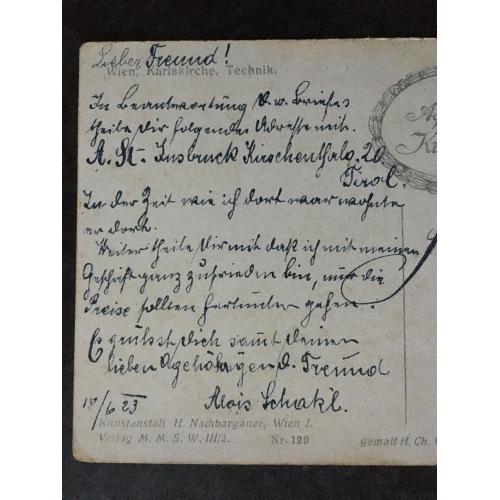 Lieber Freund!
Wien, Karlskirche. Technik.
In Beantwortung d. w. Briefes
theile Dir folgende Adresse mit.
A. St. Insbruck Kirschenthalg. 20
Tirol.
In der Zeit wie ich dort war wohnte
er dort.
Weiter theile Dir mit daß ich mit meinen
Geschäft ganz zufrieden bin, nur die
Preise sollten herunter gehen.
Es grüßst Dich samt Deinen
lieben Agehörigen d. Freund
Alois Schakl.
18/6 23
Kunstanstalt H. Nachbargauer, Wien I.
Verlag M. M. S. W. III/2. Nr. 129 gemalt H. Ch.